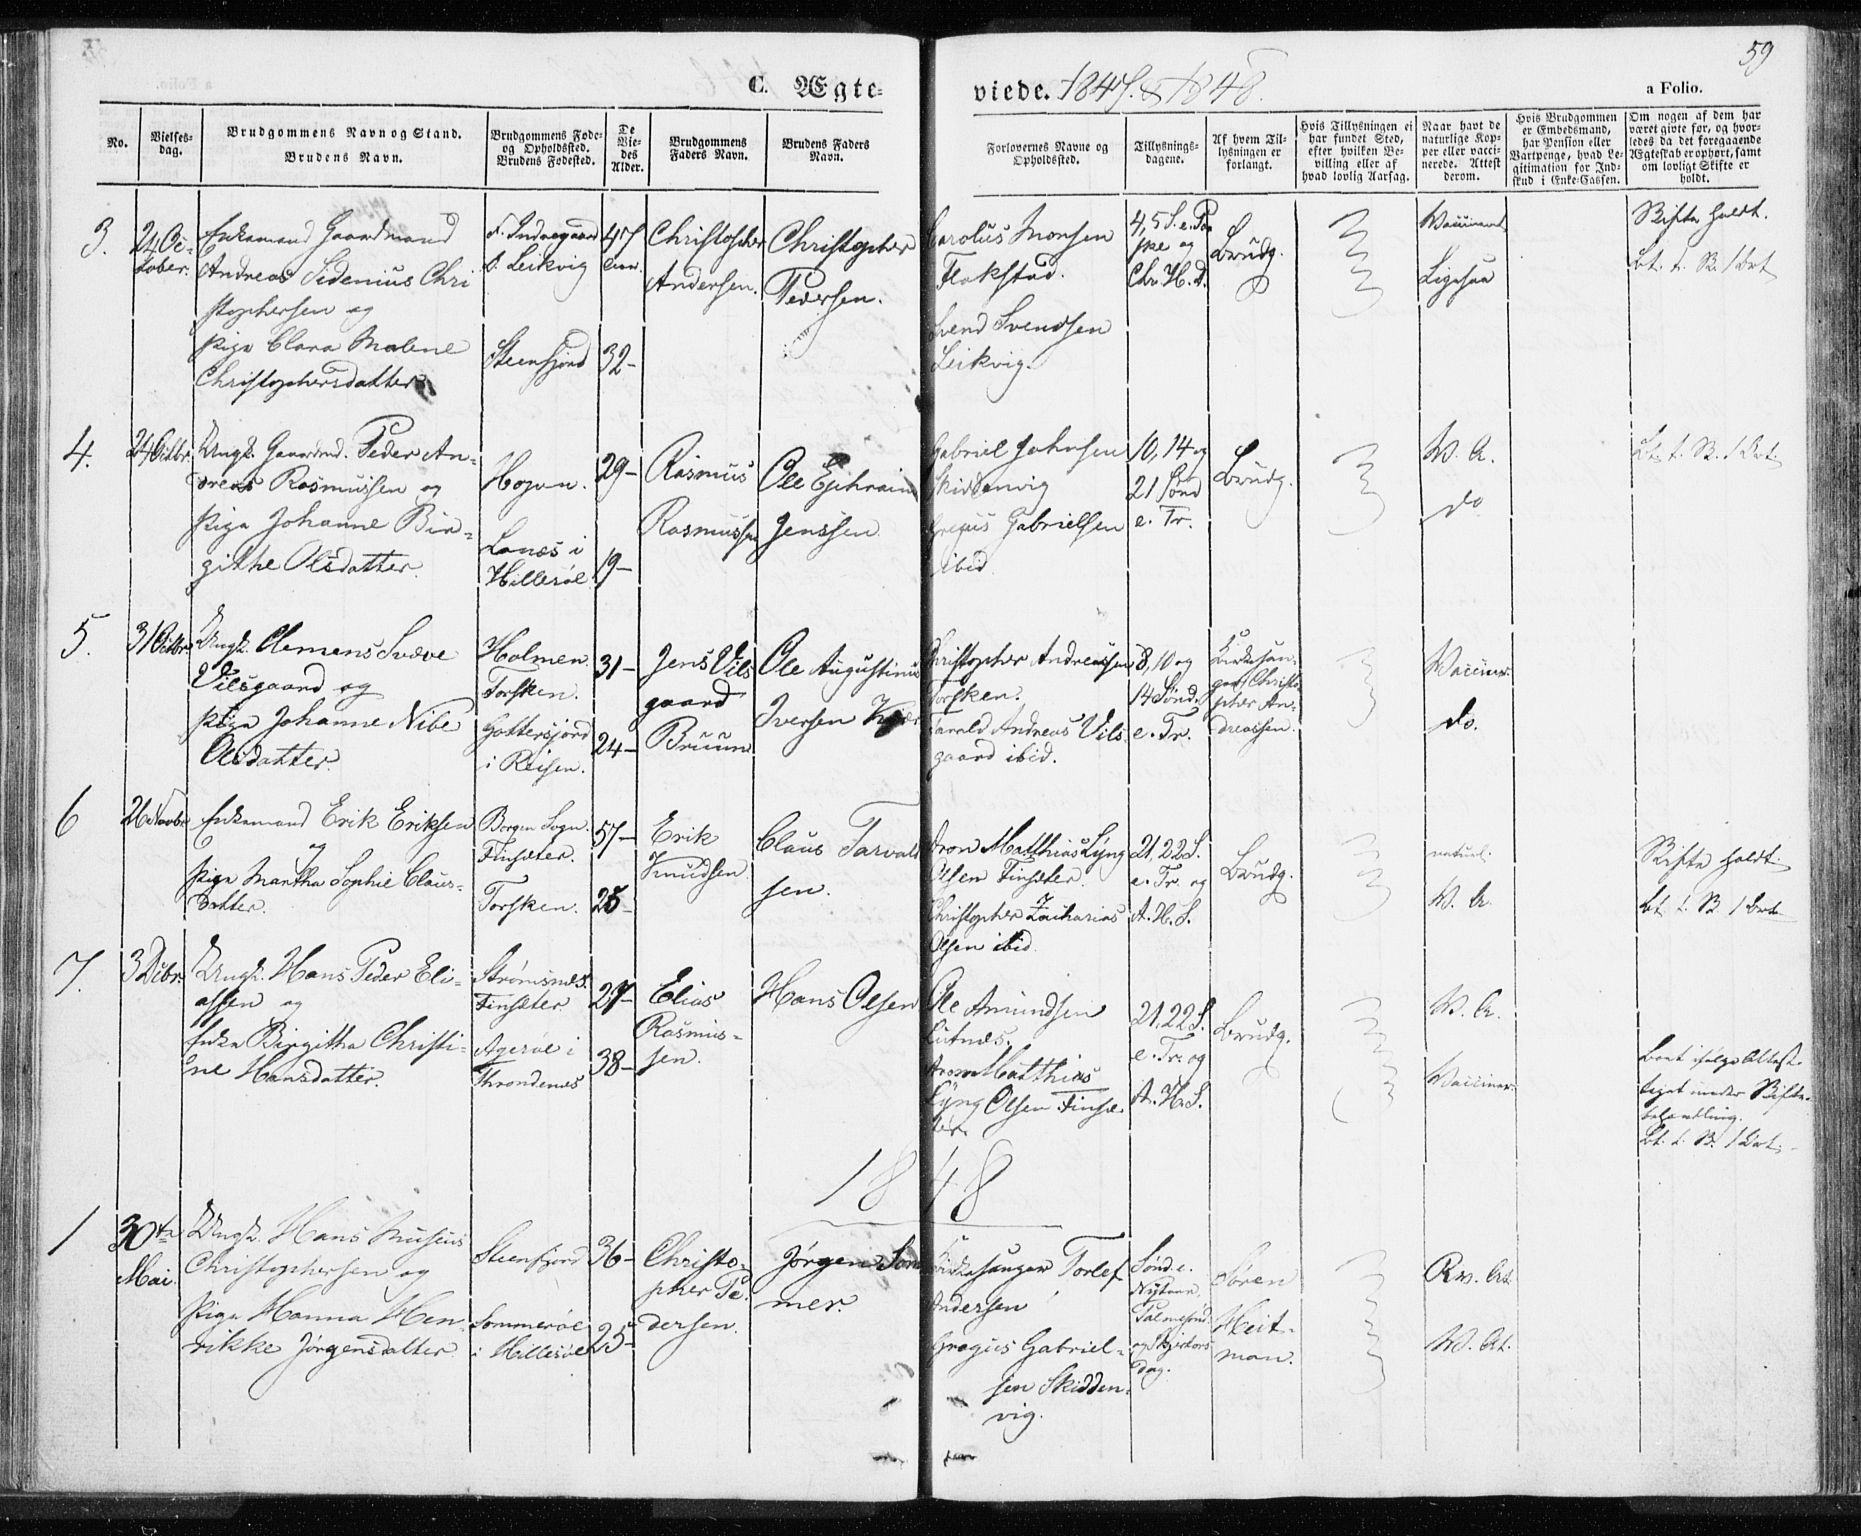 59
C. Ægte-
viede. 1847. & 1848.
a Folio.
No.
Vielses-
dag.
Brudgommens Navn og Stand.
Brudens Navn.
Brudgommens Føde-
og Opholdssted.
Brudens Fødested.
De
Vie-
des
Alder.
Brudgommens
Faders Navn.
Brudens Faders
Navn.
Forlovernes Navne og
Opholdssted.
Tillysnings-
dagene.
Af hvem Til-
lysningen er
forlangt.
Hvis Tillysningen ei
har fundet Sted,
efter hvilken Be-
villing eller af
hvad lovlig Aarsag.
Naar havt de
naturlige Kop-
per eller vacci-
nerede. Attest
derom.
Hvis Brudgommen
er Embedsmand,
har Pension eller
Vartpenge, hvad Le-
gitimation for Ind-
skud i Enke-Cassen.
Om nogen af dem har
været givte før, og hvor-
ledes da det foregaaende
Ægteskab er ophørt, samt
om lovligt Skifte er
holdt.
3.
24 Oc-
tober.
Enkemand Gaardmand
Andreas Sidenius Chri
stophersen og
Pige Clara Malene
Christophersdatter
f. Indregaard
b. Leikvig
Steenfjord
47
32-
Christopher
Andersen.
Christopher
Pedersen.
Carolus Monsen
Flakstad.
Svend Svendsen
Leikvig.
4, 5 S. e. Pa
ske og
Chr. H. D.
Brudg.
Ligesaa
Skifte holdt.
4.
24 Octbr.
Ungk. Gaardmd. Peder An-
dreas Rasmussen og
Pige Johanne Bir-
githe Olsdatter.
Lanes i
Hillesøe
29-
19-
Rasmus
Rasmussen
Ole Ephraim
Jenssen
Gabriel Johnsen
Skiddenvig
Gregus Gabrielsen
ibid
10, 14 og
21 Sønd
e. Tr.
Brudg.
V. A.
do
5.
31 Octbr.
Ungk. Clemens Svæve
Vilsgaard og
Pige Johanne Nibe
Olsdatter.
Holmen
Torsken.
Gottersjord
i Reisen.
31-
24-
Jens Vils
gaard
Bruun
Ole Augustinus
Iversen Kjær
Christopher Andreassen
Torsken.
Tarald Andreas Vils-
gaard ibid.
8, 10 og
14 Sønd.
e. Tr.
Kirkesan-
ger Christo
pher An-
dreassen.
Vacciner.
do.
6
26 Novbr.
Enkemand Erik Eriksen
og
Pige Martha Sophie Claus-
datter.
Borgen Sogn.
Finsæter.
Torsken.
57-
25-
Erik
Knudsen
Claus Tarvald
sen.
Aron Matthias Lyng
Olsen Finsæter.
Christopher Zacharias
Olsen ibid
21, 22 S.
e. Tr. og
A. H. S.
Brudg.
naturl.
V. A.
Skifte holdt.
7.
3 Dcbr.
Ungk. Hans Peder Eli-
assen og
Enke Birgitha Christi-
ne Hansdatter.
Strømsnæs.
Finsæter
Agerøe i
Throndenes
27-
38-
Elias
Rasmus-
sen.
Hans Olsen
Ole Amundsen
Lutnæs.
Aron Matthias
Lyng Olsen Finsæ
ter.
21, 22 S.
e. Tr. og
A. H. S.
Brudg.
V. A.
Vacciner.
Boet ifølge Attest
taget under Skifte-
behandling.
1848
1
30te
Mai.
Ungk. Hans Musæus
Christophersen og
Pige Hanna Hen
rikke Jørgensdatter
Steenfjord
Sommerøe
i Hillesøe
36-
25-
Christo-
pher Pe-
dersen.
Jørgen Som
mer.
Kirkesanger Torlef
Andersen
Gregus Gabriel-
sen Skidden-
vig.
Sønd. e.
Nytaar.
Palmesønd.
og Skjertors
dag.
Søren
Heit-
man.
Rv. At.
V. At.